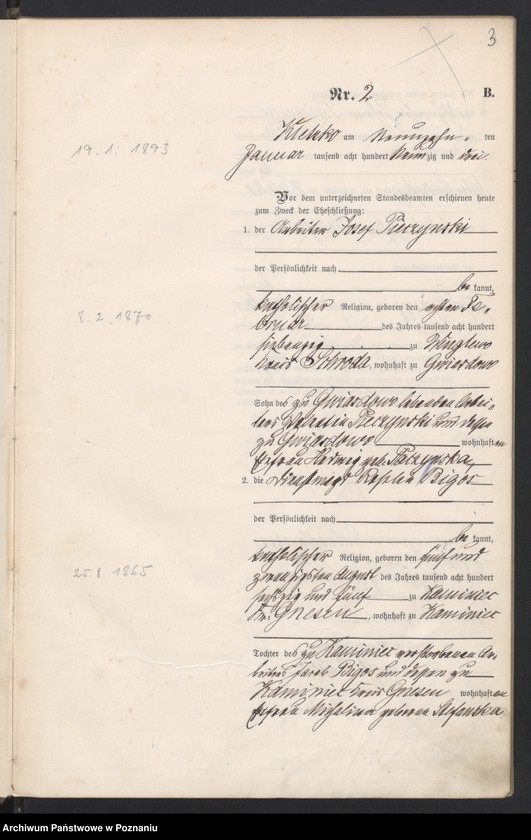 3
Nr. 2 B.
Kletzko am Neunzehn ten
19.1. 1893
Januar tausend acht hundert Neunzig und drei.
Vor dem unterzeichneten Standesbeamten erschienen heute
zum Zweck der Eheschließung:
1. der Arbeiter Josef Pieczynski
der Persönlichkeit nach
be kannt,
katholischer Religion, geboren den achten Fe-
8.2.1870
bruar des Jahres tausend acht hundert
siebenzig zu
Kreis Schroda, wohnhaft zu Gwiazdowo
Sohn des zu Gwiazdowo lebenden Arbei-
ters Valentin Pieczynski und dessen
zu Gwiazdowo wohnhaften
Ehefrau Hedwig geb.
2. die Dienstmagd Bigos
der Persönlichkeit nach
be kannt,
katholischer Religion, geboren den fünf und
25.8.1865
zwanzigsten August des Jahres tausend acht hundert
sechszig und fünf zu Kaminiec
Kr. Gnesen, wohnhaft zu Kaminiec
Tochter des zu Kaminiec verstorbenen Ar-
beiters Jacob Bigos und dessen zu
Kaminiec Kreis Gnesen wohnhaften
Ehefrau Michalina geborene Stefanska
Archiwum Państwowe w Poznaniu